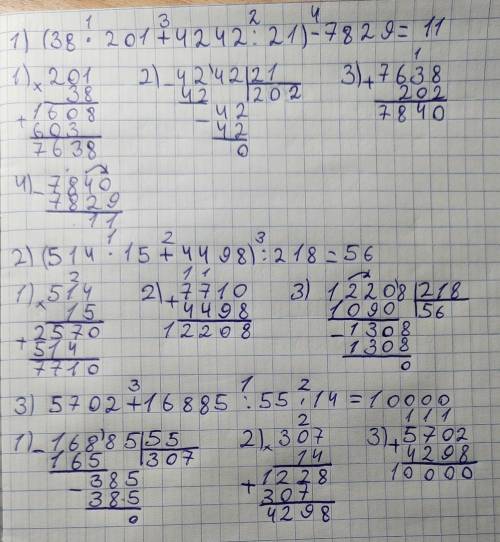 1 3 2 4
1) (38 · 201 + 4242 : 21) - 7829 = 11
1) × 201
38
+ 1608
603
7638
2) - 4242 | 21
42 | 202
- 42
42
0
1
3) + 7638
202
7840
4) - 7840
7829
11
1 2 3
2) (514 · 15 + 4498) : 218 = 56
2
1) × 514
15
+ 2570
514
7710
1 1
2) + 7710
4498
12208
3) 12208 | 218
1090 | 56
- 1308
1308
0
3 1 2
3) 5702 + 16885 : 55 · 14 = 10000
1) - 16885 | 55
165 | 307
- 385
385
0
2
2) × 307
14
+ 1228
307
4298
1 1 1
3) + 5702
4298
10000